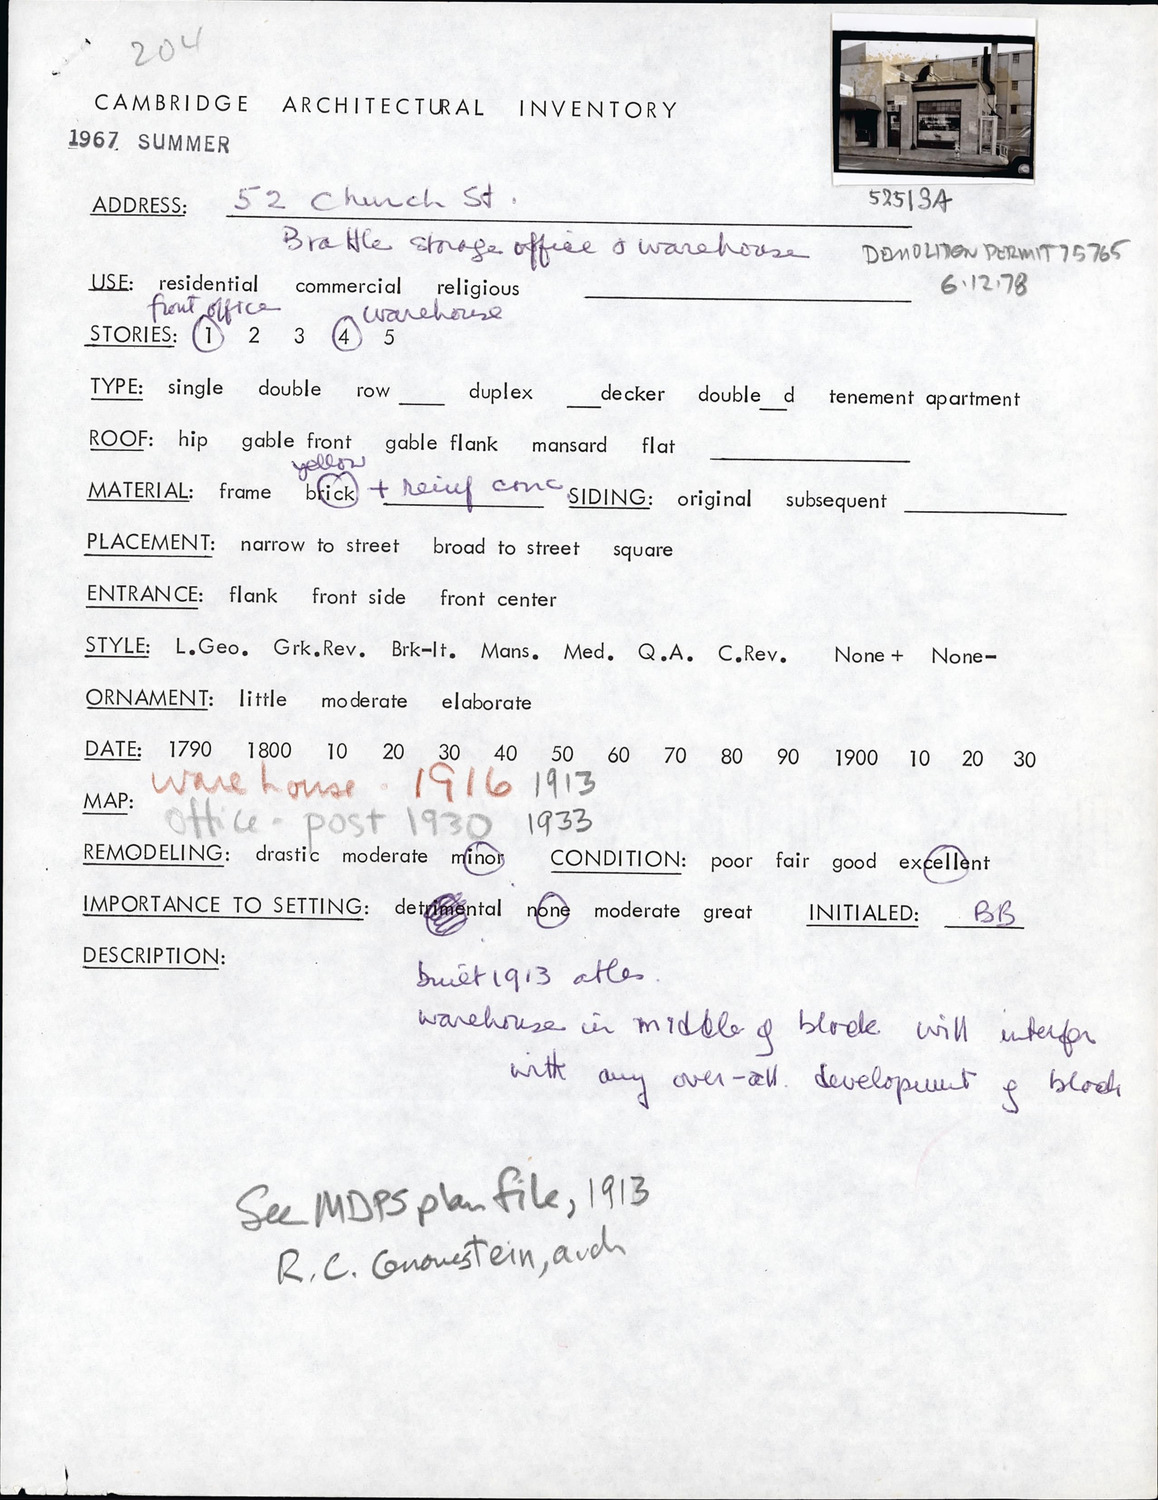 204
CAMBRIDGE ARCHITECTURAL INVENTORY
1967 SUMMER
52513A
ADDRESS: 52 Church St.
Brattle storage office & warehouse
DEMOLITION PERMIT 75765
6.12.78
USE: residential commercial religious
front office warehouse
STORIES: 1 2 3 4 5
TYPE: single double row ___ duplex ___decker double__d tenement apartment
ROOF: hip gable front gable flank mansard flat
yellow
MATERIAL: frame brick + reinf conc SIDING: original subsequent
PLACEMENT: narrow to street broad to street square
ENTRANCE: flank front side front center
STYLE: L.Geo. Grk.Rev. Brk-It. Mans. Med. Q.A. C.Rev. None+ None-
ORNAMENT: little moderate elaborate
DATE: 1790 1800 10 20 30 40 50 60 70 80 90 1900 10 20 30
warehouse - 1916 1913
MAP:
office - post 1930 1933
REMODELING: drastic moderate minor CONDITION: poor fair good excellent
IMPORTANCE TO SETTING: detrimental none moderate great INITIALED: BB
DESCRIPTION:
built 1913 atlas.
warehouse in middle of block will interfer
with any over-all development of block
See MDPS plan file, 1913
R.C. arch